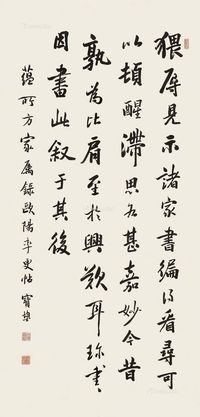 猥辱見示諸家書編得看尋可
以頓醒滯思為甚嘉妙今昔
孰為比肩至於興歎耳珎重
因書此叙于其後
蘊所方家属録歐陽率更帖 寶